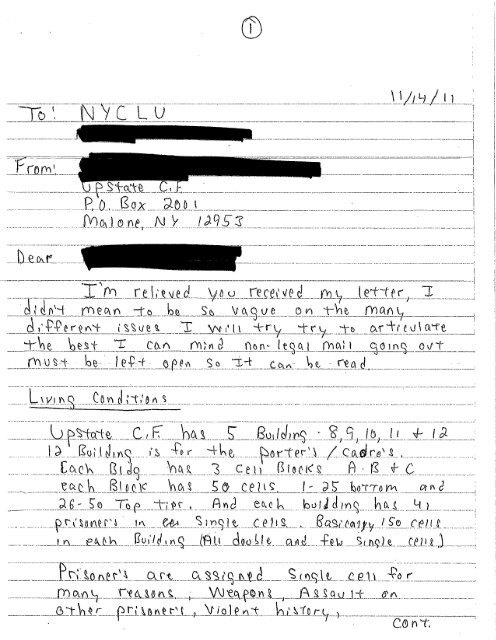 1
11/14/11
To: NYCLU
From:
Upstate C.F.
P.O. Box 2001
Malone, NY 12953
Dear
I'm relieved you received my letter, I
didn't mean to be so vague on the many
different issues I will try try to articulate
the best I can mind non-legal mail going out
must be left open so It can be read.
Living Conditions
Upstate C.F. has 5 Building - 8,9,10,11 & 12
12 Building is for the porter's / Cadre's.
Each Bldg has 3 Cell Blocks A-B & C
each Block has 50 cells. 1-25 bottom and
26-50 Top tier. And each building has
prisoner's in single cells. Basically 150 cells
in each Building (All double and few single cells)
Prisoner's are assigned single cell for
many reasons, Weapons, Assault on
other prisoner's, Violent history,
Cont.